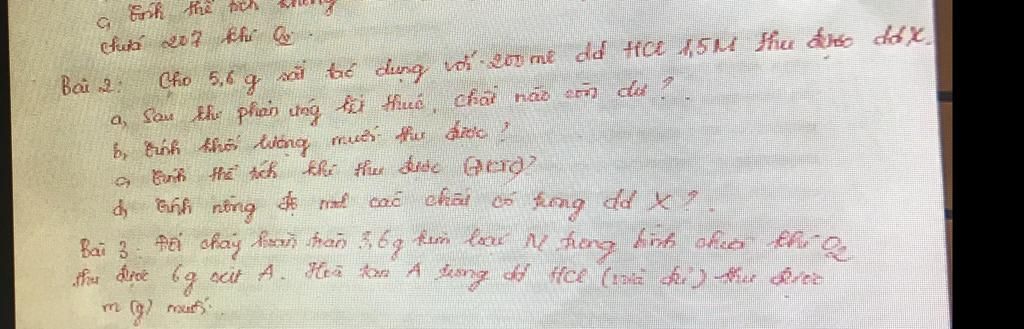 c, Tính thể tích không
chứa 20% khí O₂.
Bài 2: Cho 5,6 g sắt tác dụng với 200 ml dd HCl 1,5M thu được ddX.
a, Sau khi phản ứng kết thúc, chất nào còn dư?
b, Tính khối lượng muối thu được?
c, Tính thể tích khí thu được (đktc)?
d, Tính nồng độ mol các chất có trong dd X?
Bài 3: Đốt cháy hoàn toàn 3,6g kim loại M trong bình chứa khí O₂
thu được 6g oxit A. Hoà tan A trong dd HCl (vừa đủ) thu được
m (g) muối.